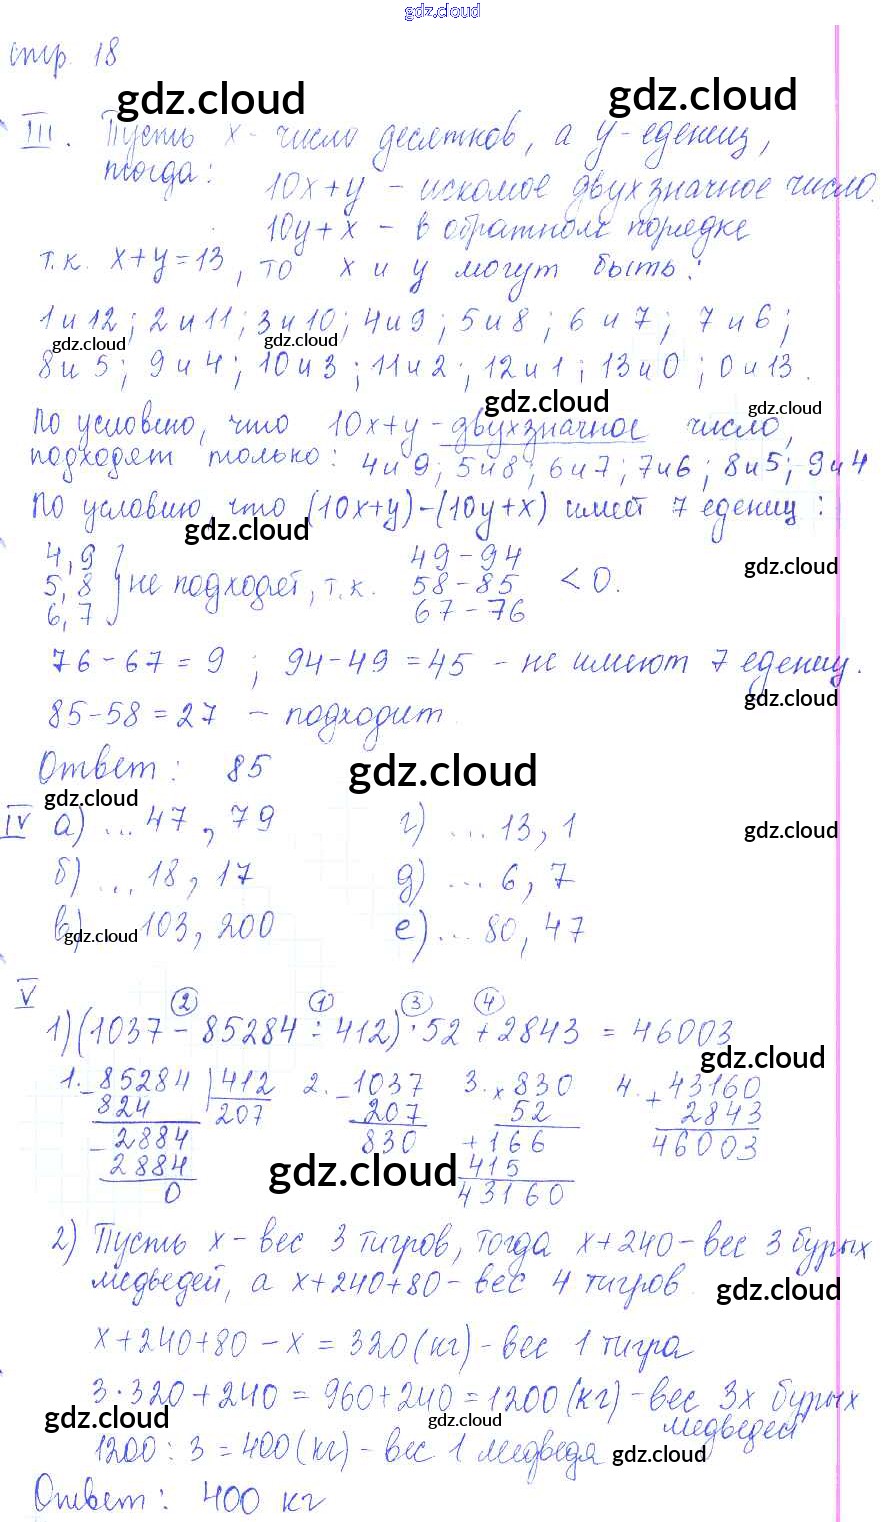 gdz.cloud
стр. 18
gdz.cloud gdz.cloud
III. Пусть x - число десятков, а y - едениц,
тогда: 10x+y - искомое двухзначное число.
10y+x - в обратном порядке
т.к. x+y=13, то x и y могут быть:
1 и 12; 2 и 11; 3 и 10; 4 и 9; 5 и 8; 6 и 7; 7 и 6;
gdz.cloud gdz.cloud
8 и 5; 9 и 4; 10 и 3; 11 и 2; 12 и 1; 13 и 0; 0 и 13.
gdz.cloud gdz.cloud
По условию, что 10x+y - двухзначное число,
подходят только: 4 и 9; 5 и 8; 6 и 7; 7 и 6; 8 и 5; 9 и 4
По условию, что (10x+y)-(10y+x) имеет 7 едениц:
gdz.cloud
4, 9 49-94
5, 8 } не подходят, т.к. 58-85 < 0.
6, 7 67-76
gdz.cloud
76-67=9; 94-49=45 - не имеют 7 едениц.
gdz.cloud
85-58=27 - подходит.
Ответ: 85
gdz.cloud
gdz.cloud
IV а) ... 47, 79 г) ... 13, 1
gdz.cloud
б) ... 18, 17 д) ... 6, 7
в) ... 103, 200 е) ... 80, 47
gdz.cloud
V
② ① ③ ④
1) (1037 - 85284 : 412) · 52 + 2843 = 46003
gdz.cloud
1. - 85284 | 412 2. - 1037 3. × 830 4. + 43160
824 207 207 52 2843
- 2884 830 + 166 46003
2884 415
0 43160
gdz.cloud
2) Пусть x - вес 3 тигров, тогда x+240 - вес 3 бурых
медведей, а x+240+80 - вес 4 тигров.
gdz.cloud
x+240+80-x=320 (кг) - вес 1 тигра
3·320+240=960+240=1200 (кг) - вес 3х бурых
медведей
gdz.cloud gdz.cloud
1200:3=400 (кг) - вес 1 медведя
gdz.cloud
Ответ: 400 кг